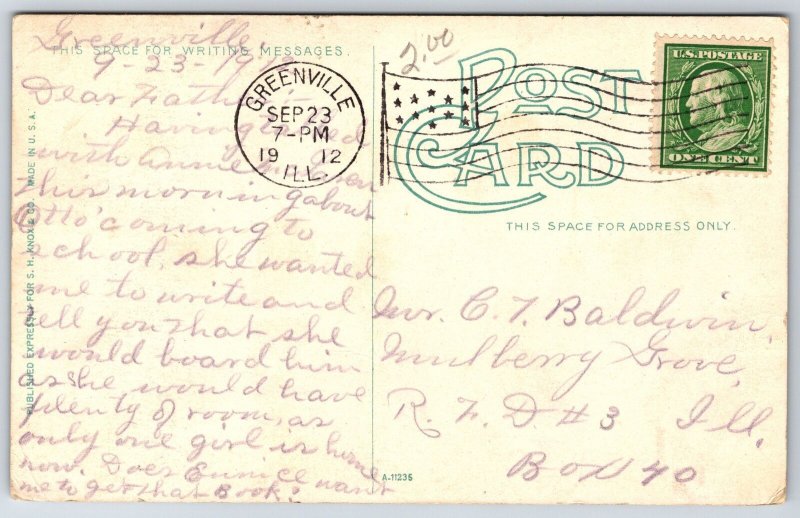 THIS SPACE FOR WRITING MESSAGES.
Greenville,
9-23-19
Dear Father:
Having
with
this morning about
Otto' coming to
school, she wanted
me to write and
tell you that she
would board him
as she would have
plenty of room, as
only one girl is home
now. Does Eunice want
me to get that Book?
PUBLISHED EXPRESSLY FOR S. H. KNOX & CO. MADE IN U.S.A.
2.00
GREENVILLE
SEP 23
7-PM
19 12
ILL.
POST
CARD
U.S. POSTAGE
ONE CENT
THIS SPACE FOR ADDRESS ONLY.
Mr. C. T. Baldwin,
Mulberry Grove,
R. F. D #3 Ill.
Box 40
A-11235